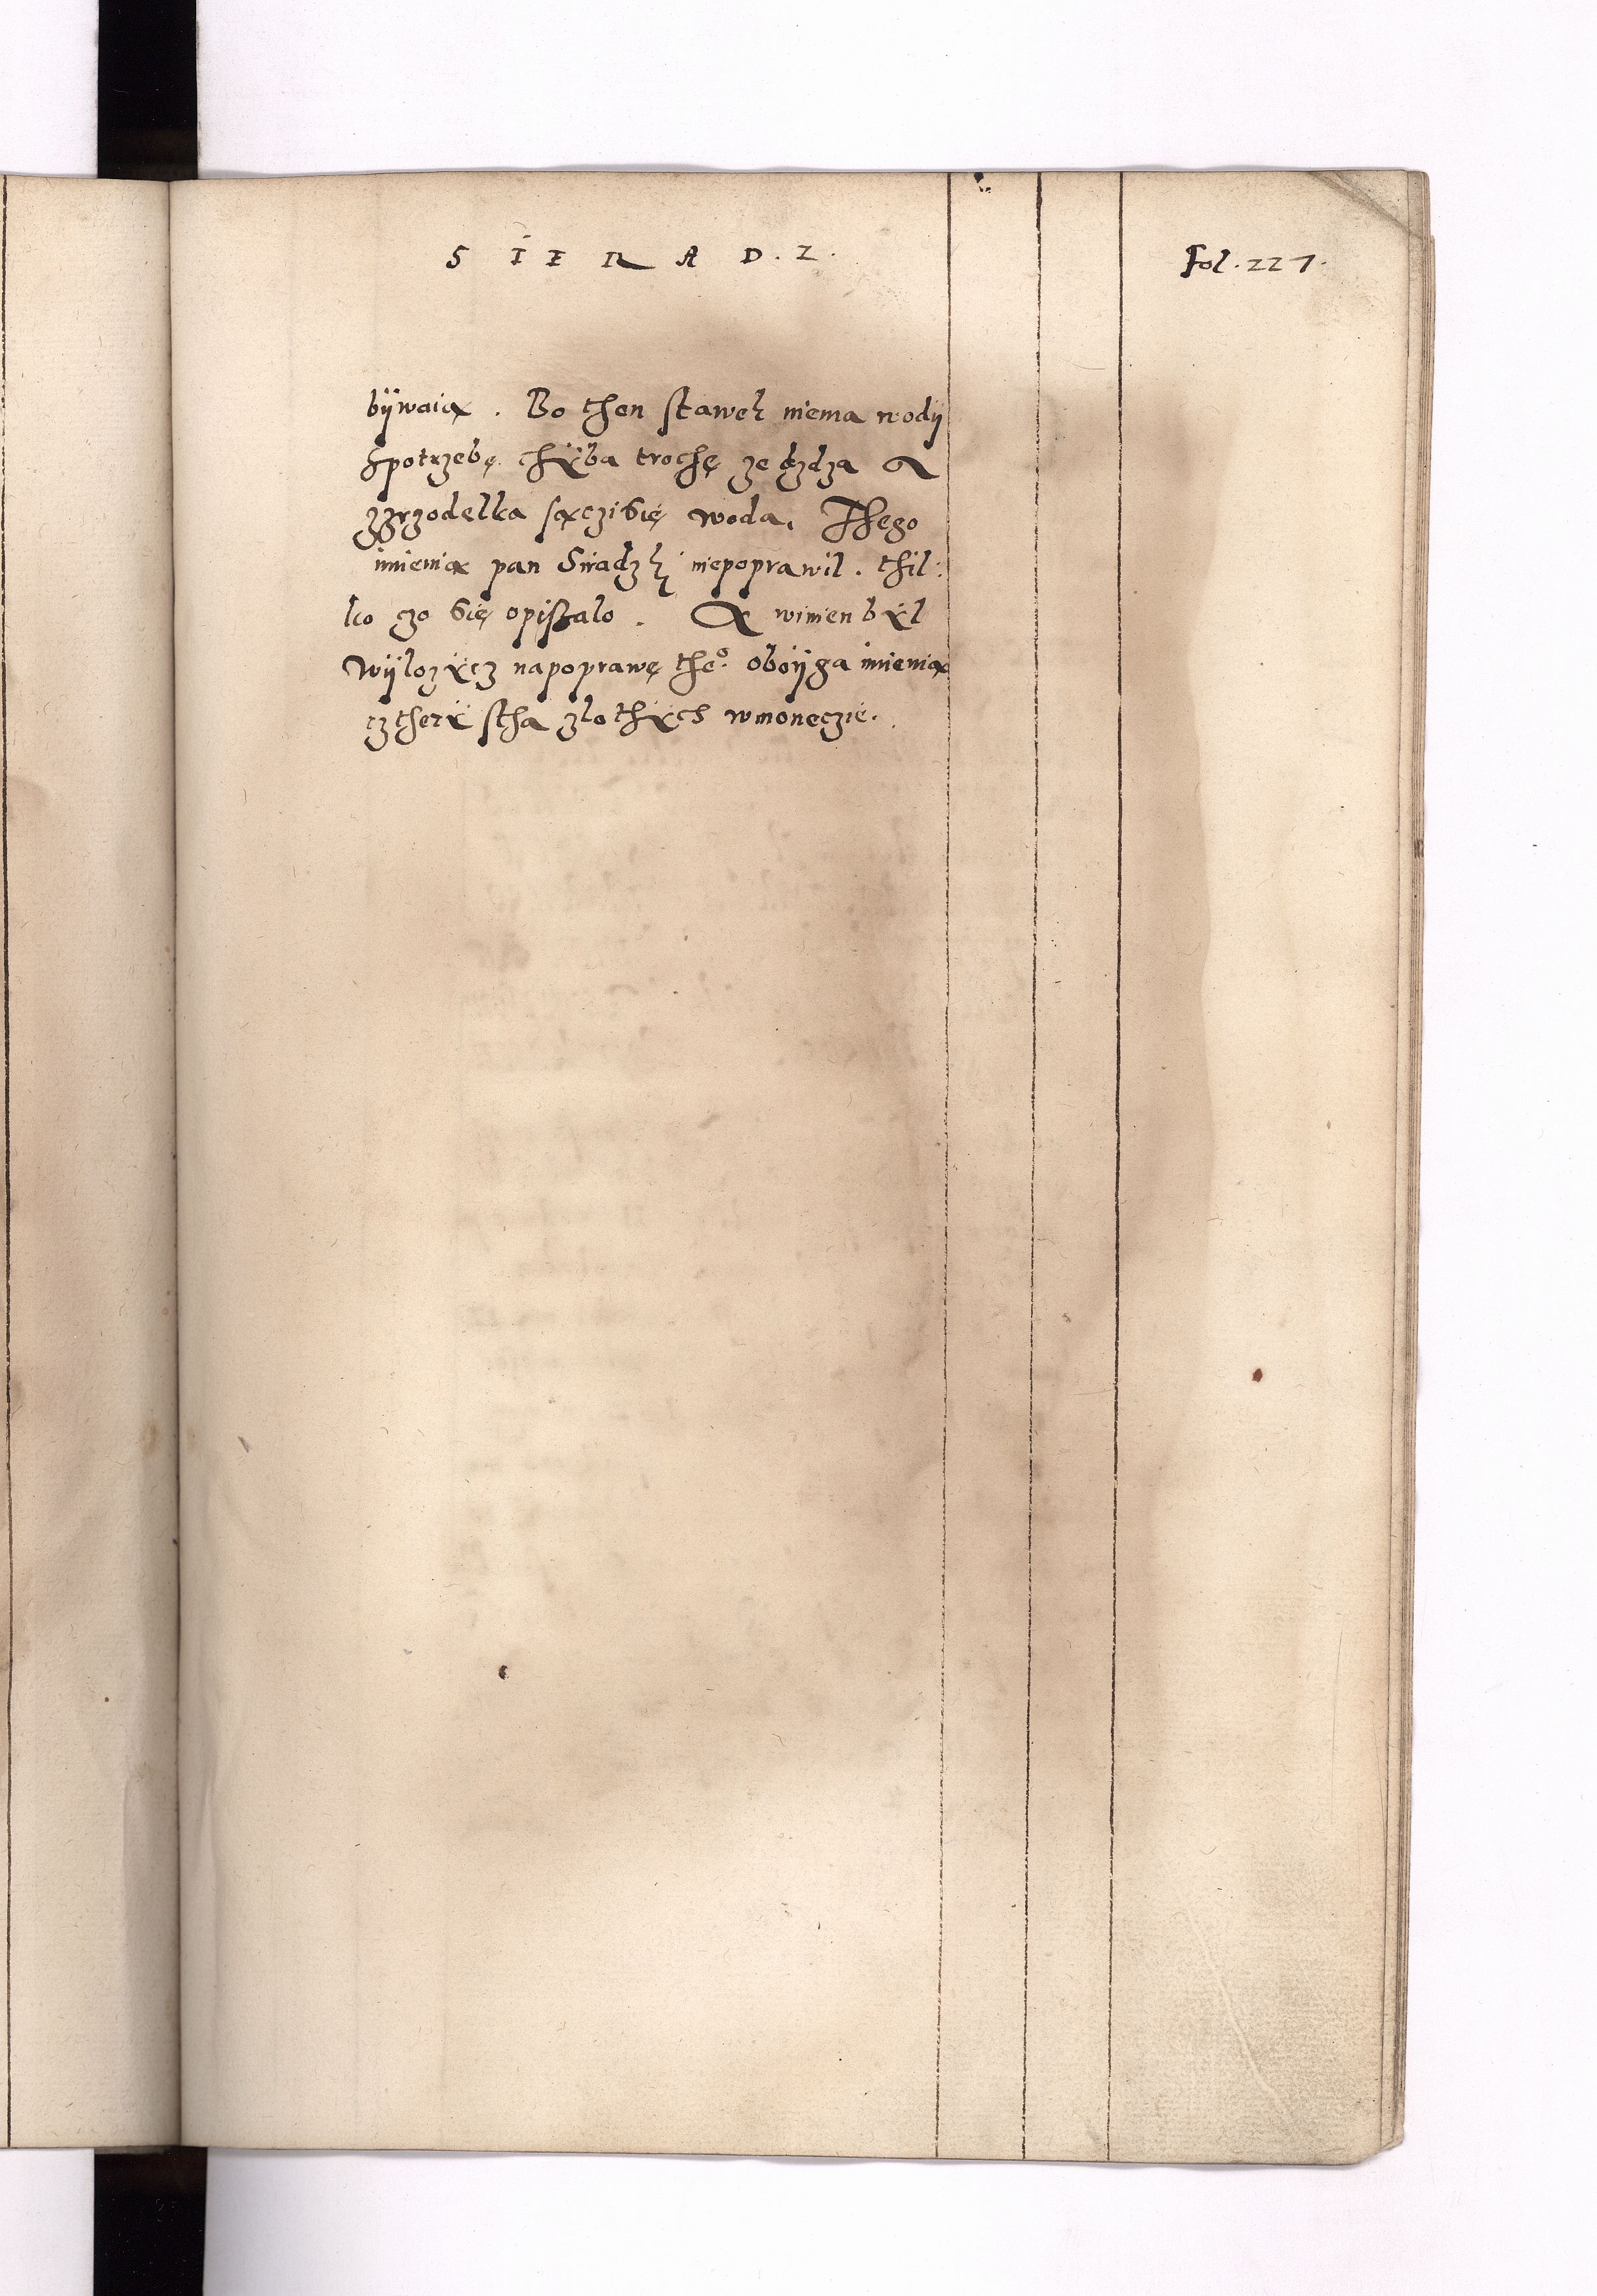 S I E R A D . Z .
Fol. 227.
bÿwaią . Bo then stawek niema wodÿ
spotrzebę chÿba trochę ze dzdza A
zzrzodelka sączi się woda. Thego
imienia pan Siradzki niepoprawil . thil:
ko czo się opiszalo . A winien bÿl
wÿlozÿcz napoprawę the° oboÿga imienia
cztherÿ stha zlothÿch wmoneczie.